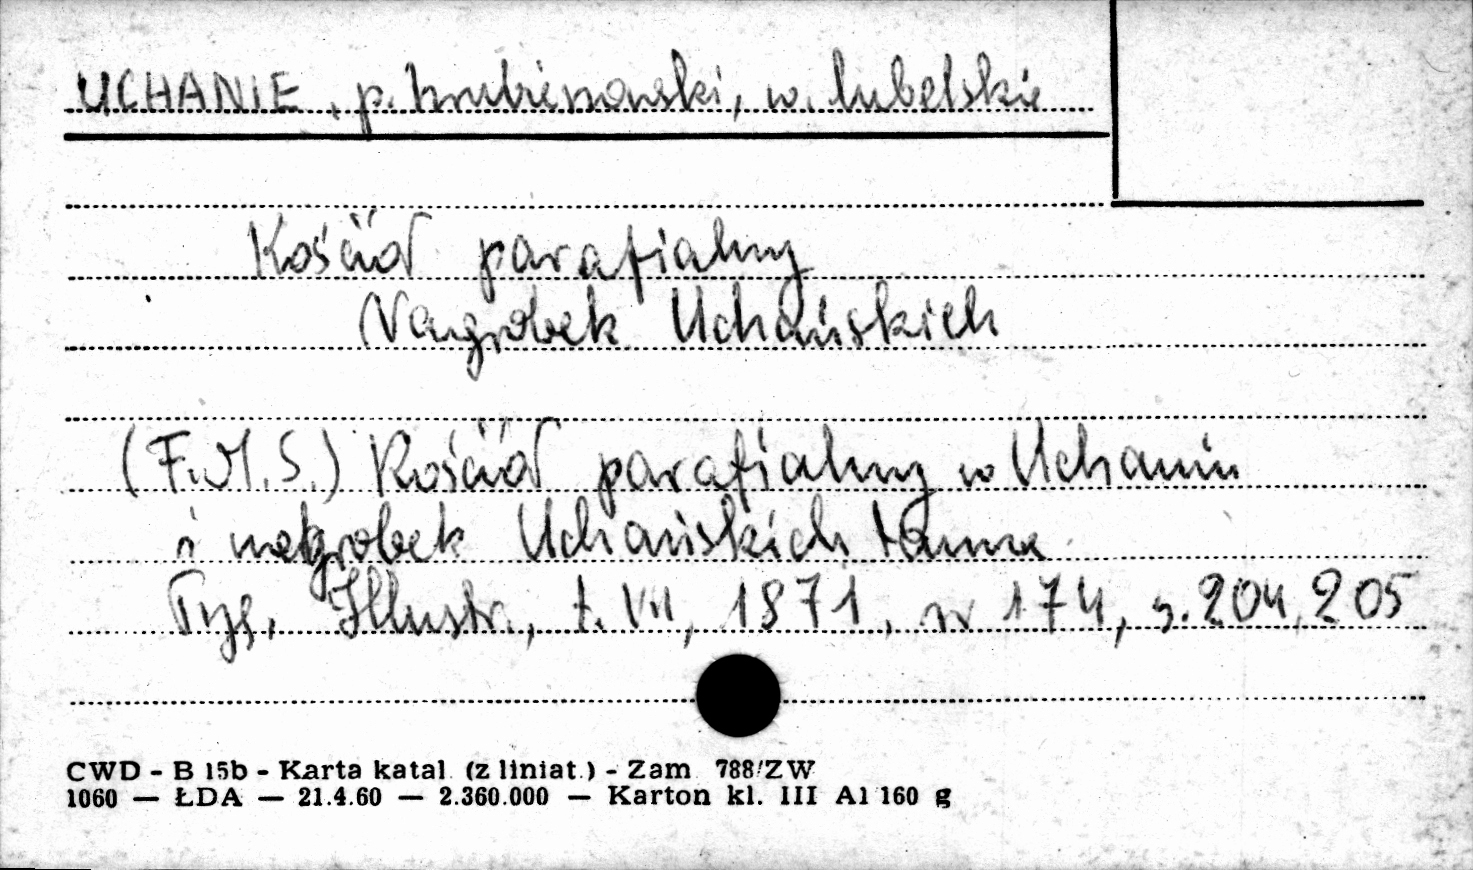 UCHANIE, p. hrubieszowski, w. lubelskie
Kościół parafialny
Nagrobek Uchańskich
(F.M.S.) Kościół parafialny w Uchaniu
i nagrobek Uchańskich tamże
Tyg. Illustr., t. VII, 1871, nr 174, s. 204, 205
CWD - B 15b - Karta katal. (z liniat.) - Zam. 788/ZW
1060 — ŁDA — 21.4.60 — 2.360.000 — Karton kl. III A1 160 g